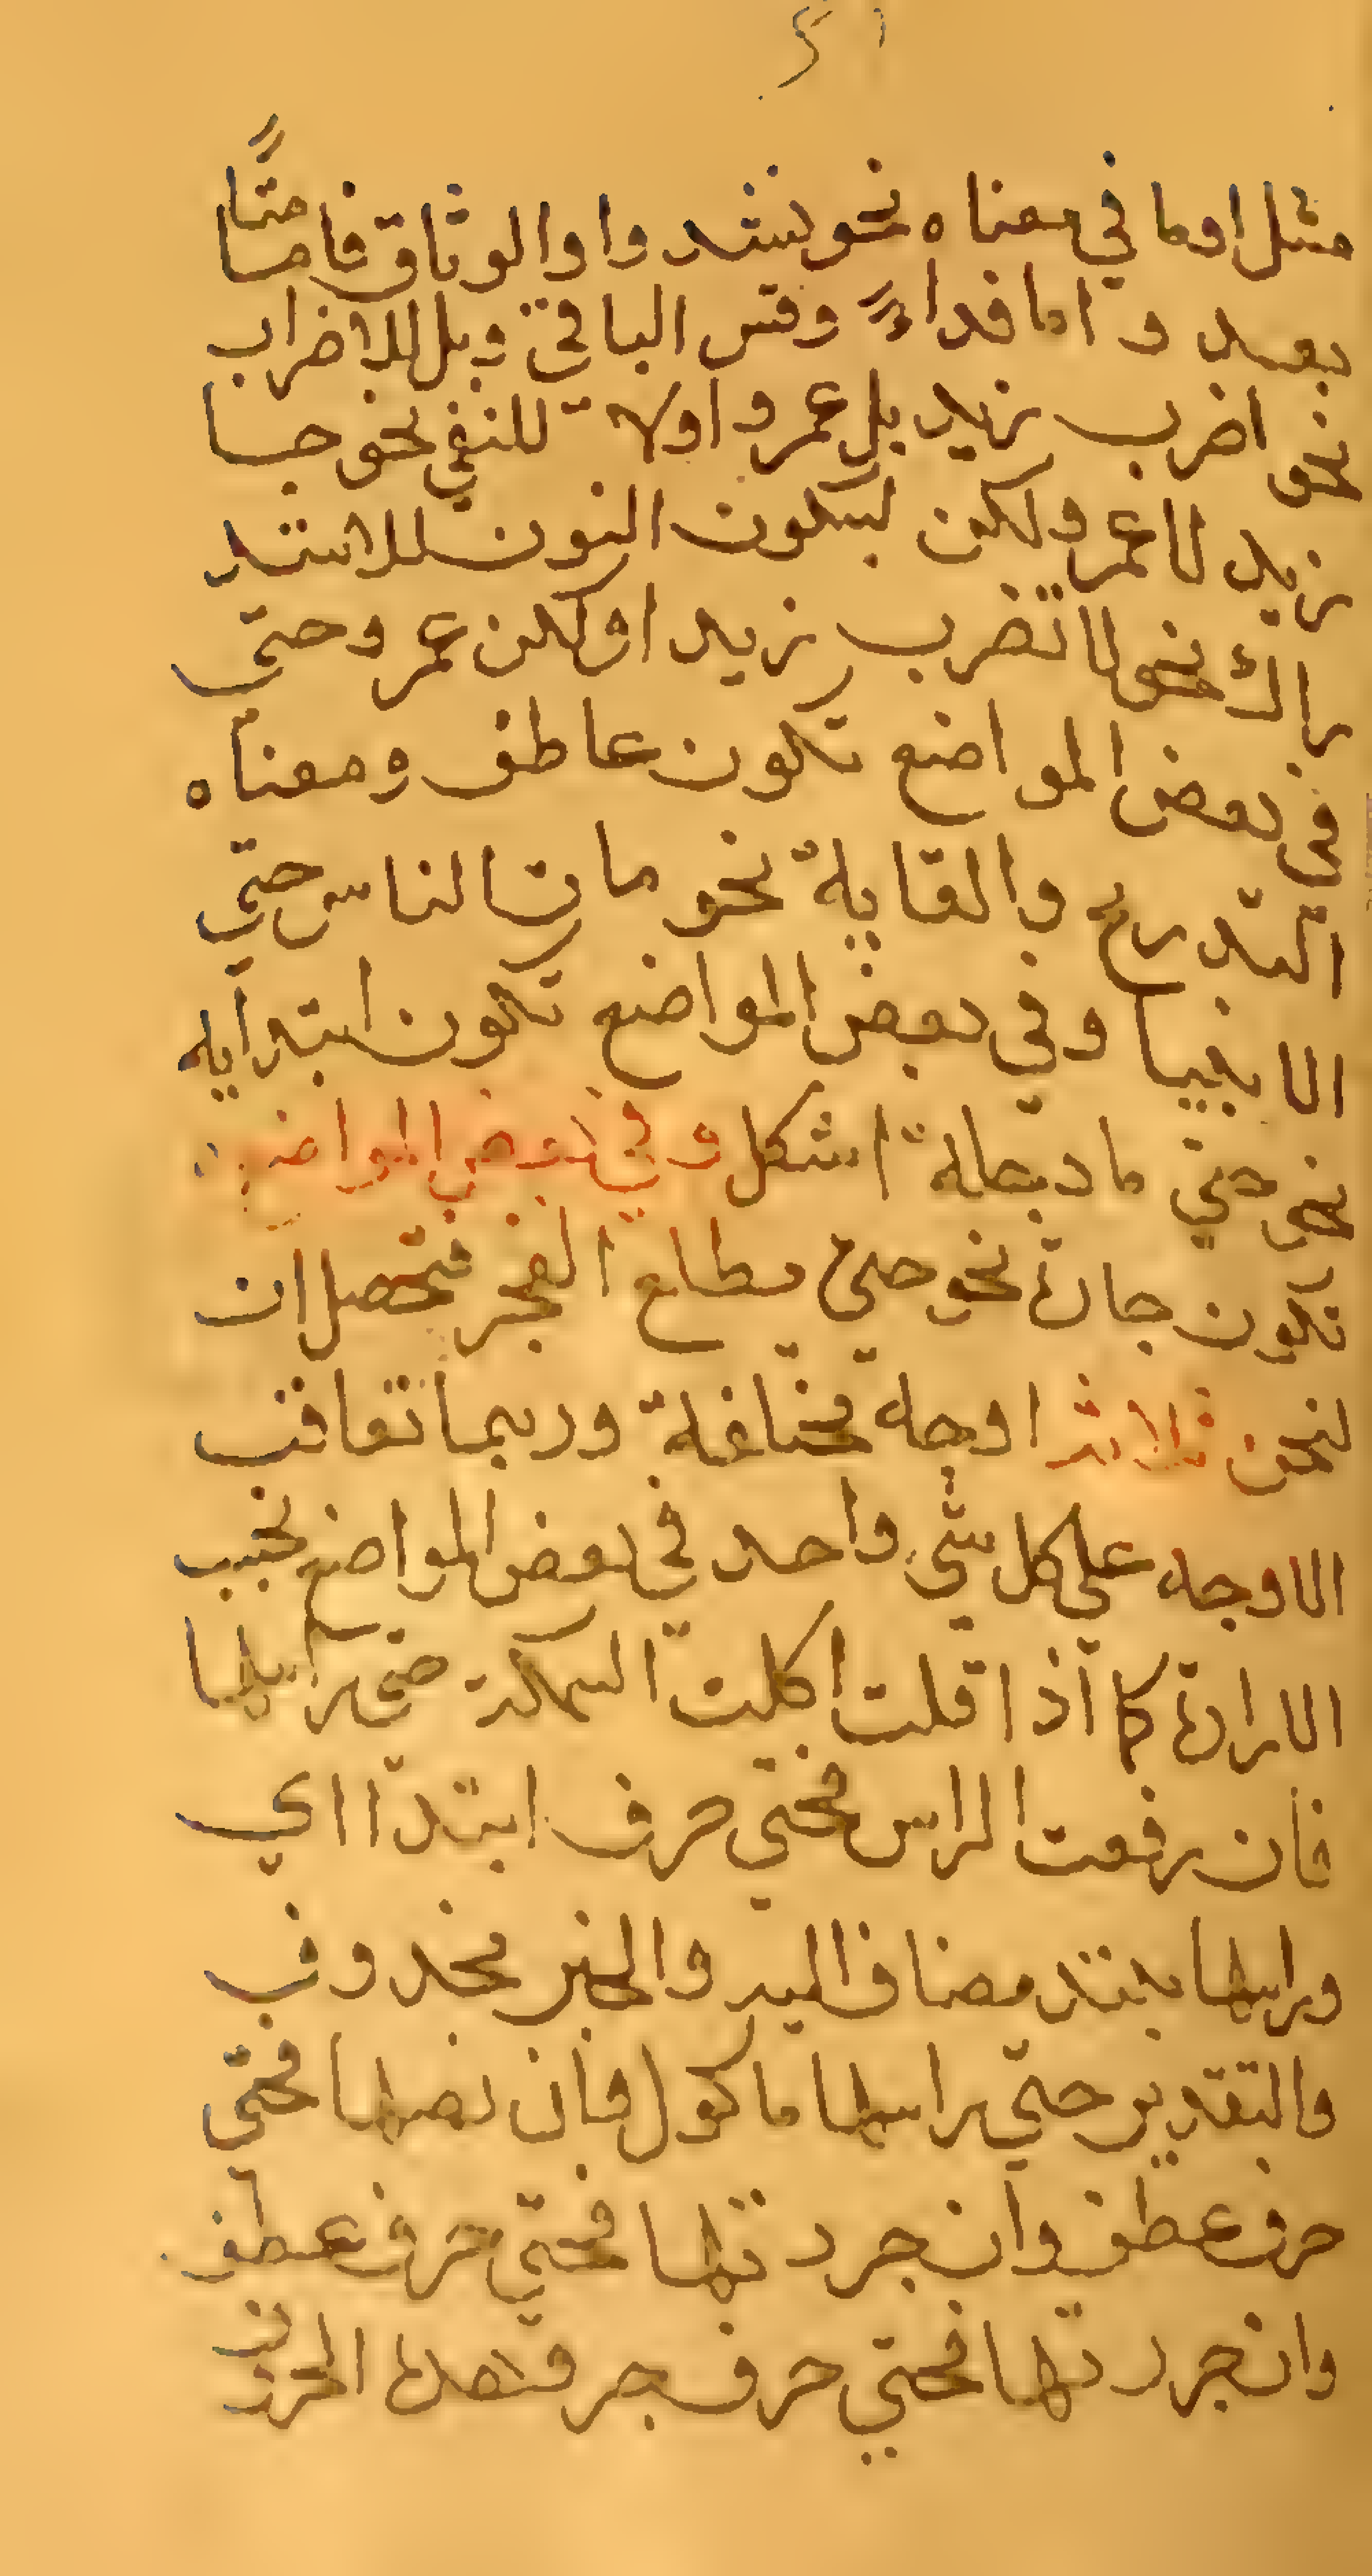 مثل اوما في معناه نحو فشد واوالوثاق فامّا منّاً
بعد و اما فداءً وقس الباقي وبل للاضراب
نحو اضرب زيد بل عمرو اولا للنفي نحو جا
زيد لا عمرو لكن بسكون النون للاستد
راك نحو لا تضرب زيد اولكن عمرو حتى
في بعض المواضع تكون عاطف ومعناه
التدريج والغاية نحو مات الناس حتى
الا نبيا وفي بعض المواضع تكون ابتدأيه
نحو حتي ما دجلة اشكل وفي بعض المواضع
تكون جارة نحو حتي مطلع الفجر فتحصل ان
ثلاثة اوجه مختلفة وربما تعاقب
الاوجه علي كل شي واحد في بعض المواضع بحسب
الارادة كما اذا قلت اكلت السمكة حتى راسها
فان رفعت الراس فحتي حرف ابتدآ اي
وراسها مبتد مضاف اليه والخبر محذوف
والتقدير حتي راسها ماكول وان نصبها فحتي
حرف عطف وان جرد تها فحتي حرف عطف
وان جرد تها فحتي حرف جر